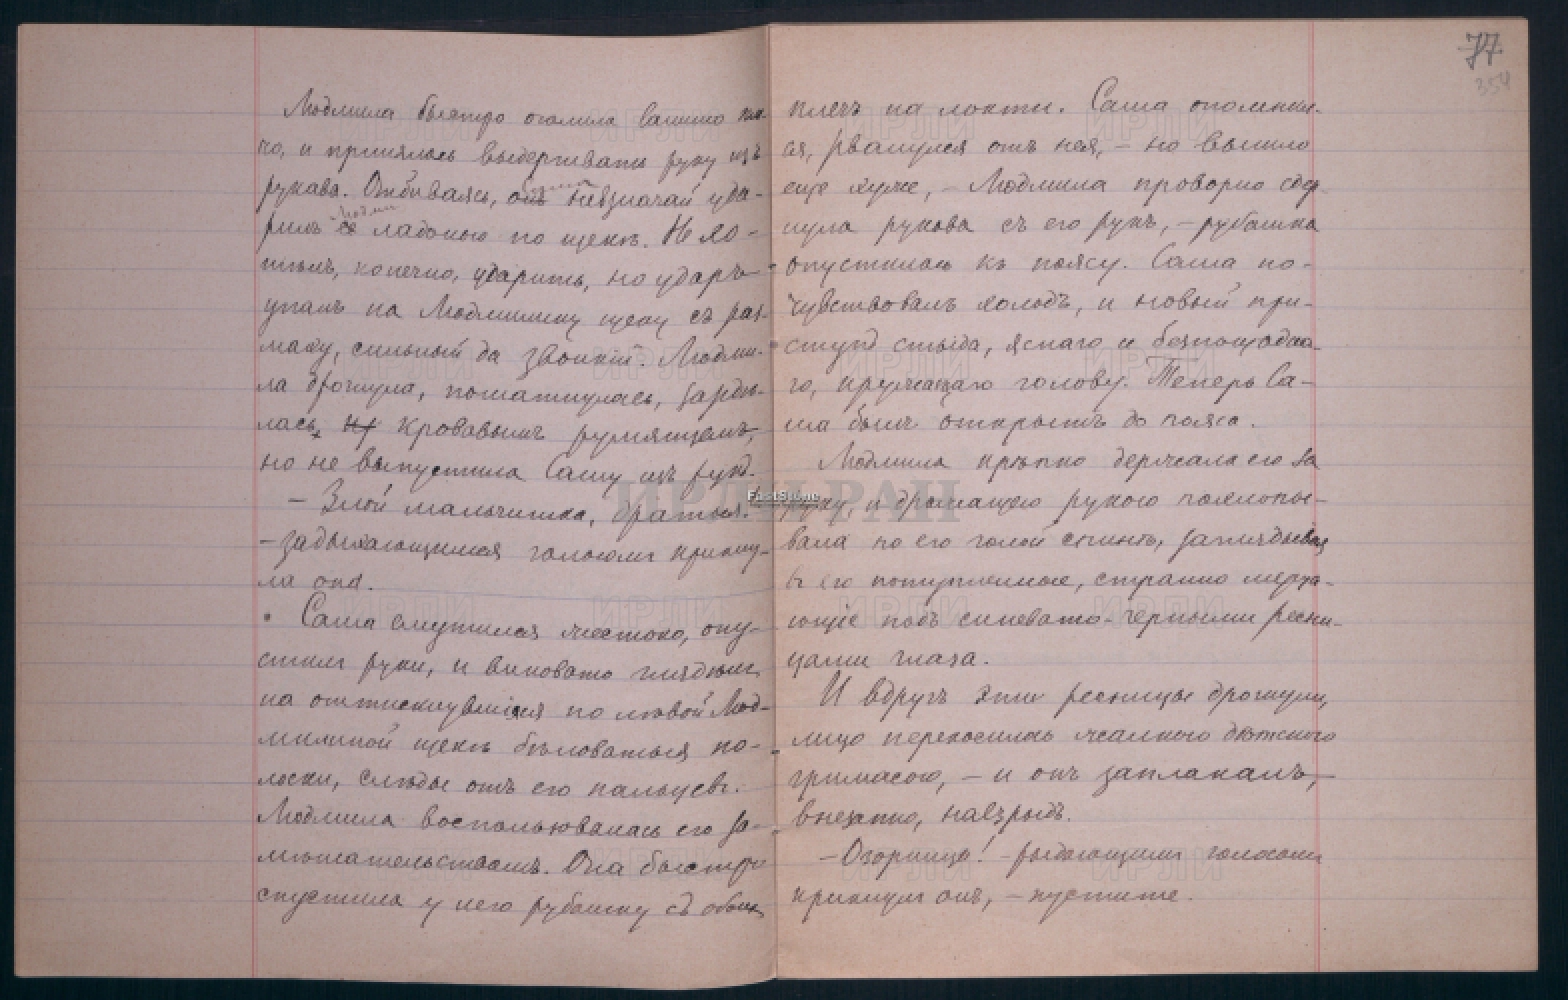 77
354
Людмила быстро оголила Сашино пле-
чо, и принялась выдергивать руку изъ
рукава. Отбиваясь, невзначай уда-
рилъ ладонью по щекѣ. Не хо-
тѣлъ, конечно, ударить, но ударъ
упалъ на Людмилину щеку съ раз-
маху, сильный да звонкій. Людми-
ла дрогнула, пошатнулась, зардѣ-
лась кровавымъ румянцемъ,
но не выпустила Сашу изъ рукъ.
– Злой мальчишка, драться!
– задыхающимся голосомъ крикну-
ла она.
Саша смутился жестоко, опу-
стилъ руки, и виновато глядѣлъ
на оттиснувшіяся по лѣвой Люд-
милиной щекѣ бѣловатыя по-
лоски, слѣды отъ его пальцевъ.
Людмила воспользовалась его за-
мѣшательствомъ. Она быстро
спустила у него рубашку съ обоихъ
плечъ на локти. Саша опомнил-
ся, рванулся отъ нея, – но вышло
еще хуже, – Людмила проворно сдер-
нула рукава съ его рукъ, – рубашка
опустилась къ поясу. Саша по-
чувствовалъ холодъ, и новый при-
ступъ стыда, яснаго и безпощадна-
го, кружащаго голову. Теперь Са-
ша былъ открытъ до пояса.
Людмила крѣпко держала его за
руку, и дрожащею рукою похлопы-
вала по его голой спинѣ, заглядывая
въ его потупленные, странно мерца-
ющіе подъ синевато-черными рѣсни-
цами глаза.
И вдругъ эти рѣсницы дрогнули,
лицо перекосилось жалкою дѣтскою
гримасою, – и онъ заплакалъ,
внезапно, навзрыдъ.
– Озорница! – рыдающимъ голосомъ
крикнулъ онъ, – пустите.
ИРЛИ РАН